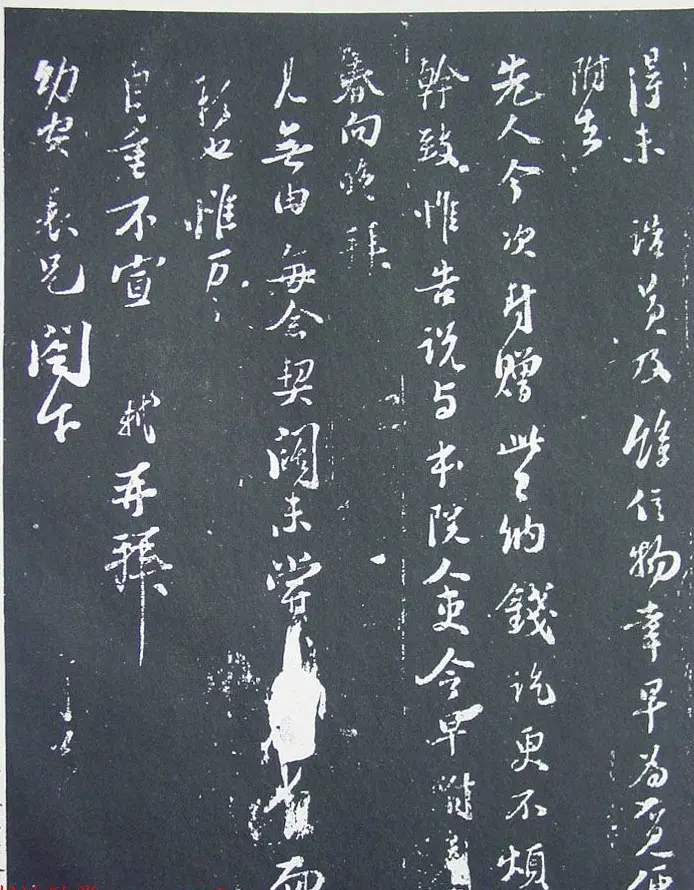 得未 誥弟及餘信物幸早為覓便
附去
先人今次封贈些納錢訖更不煩
幹致惟告說與本院人吏令早附
春向晚拜
見無由每念契闊未嘗 而
也惟万万
自重不宣 軾再拜
幼安表兄閣下